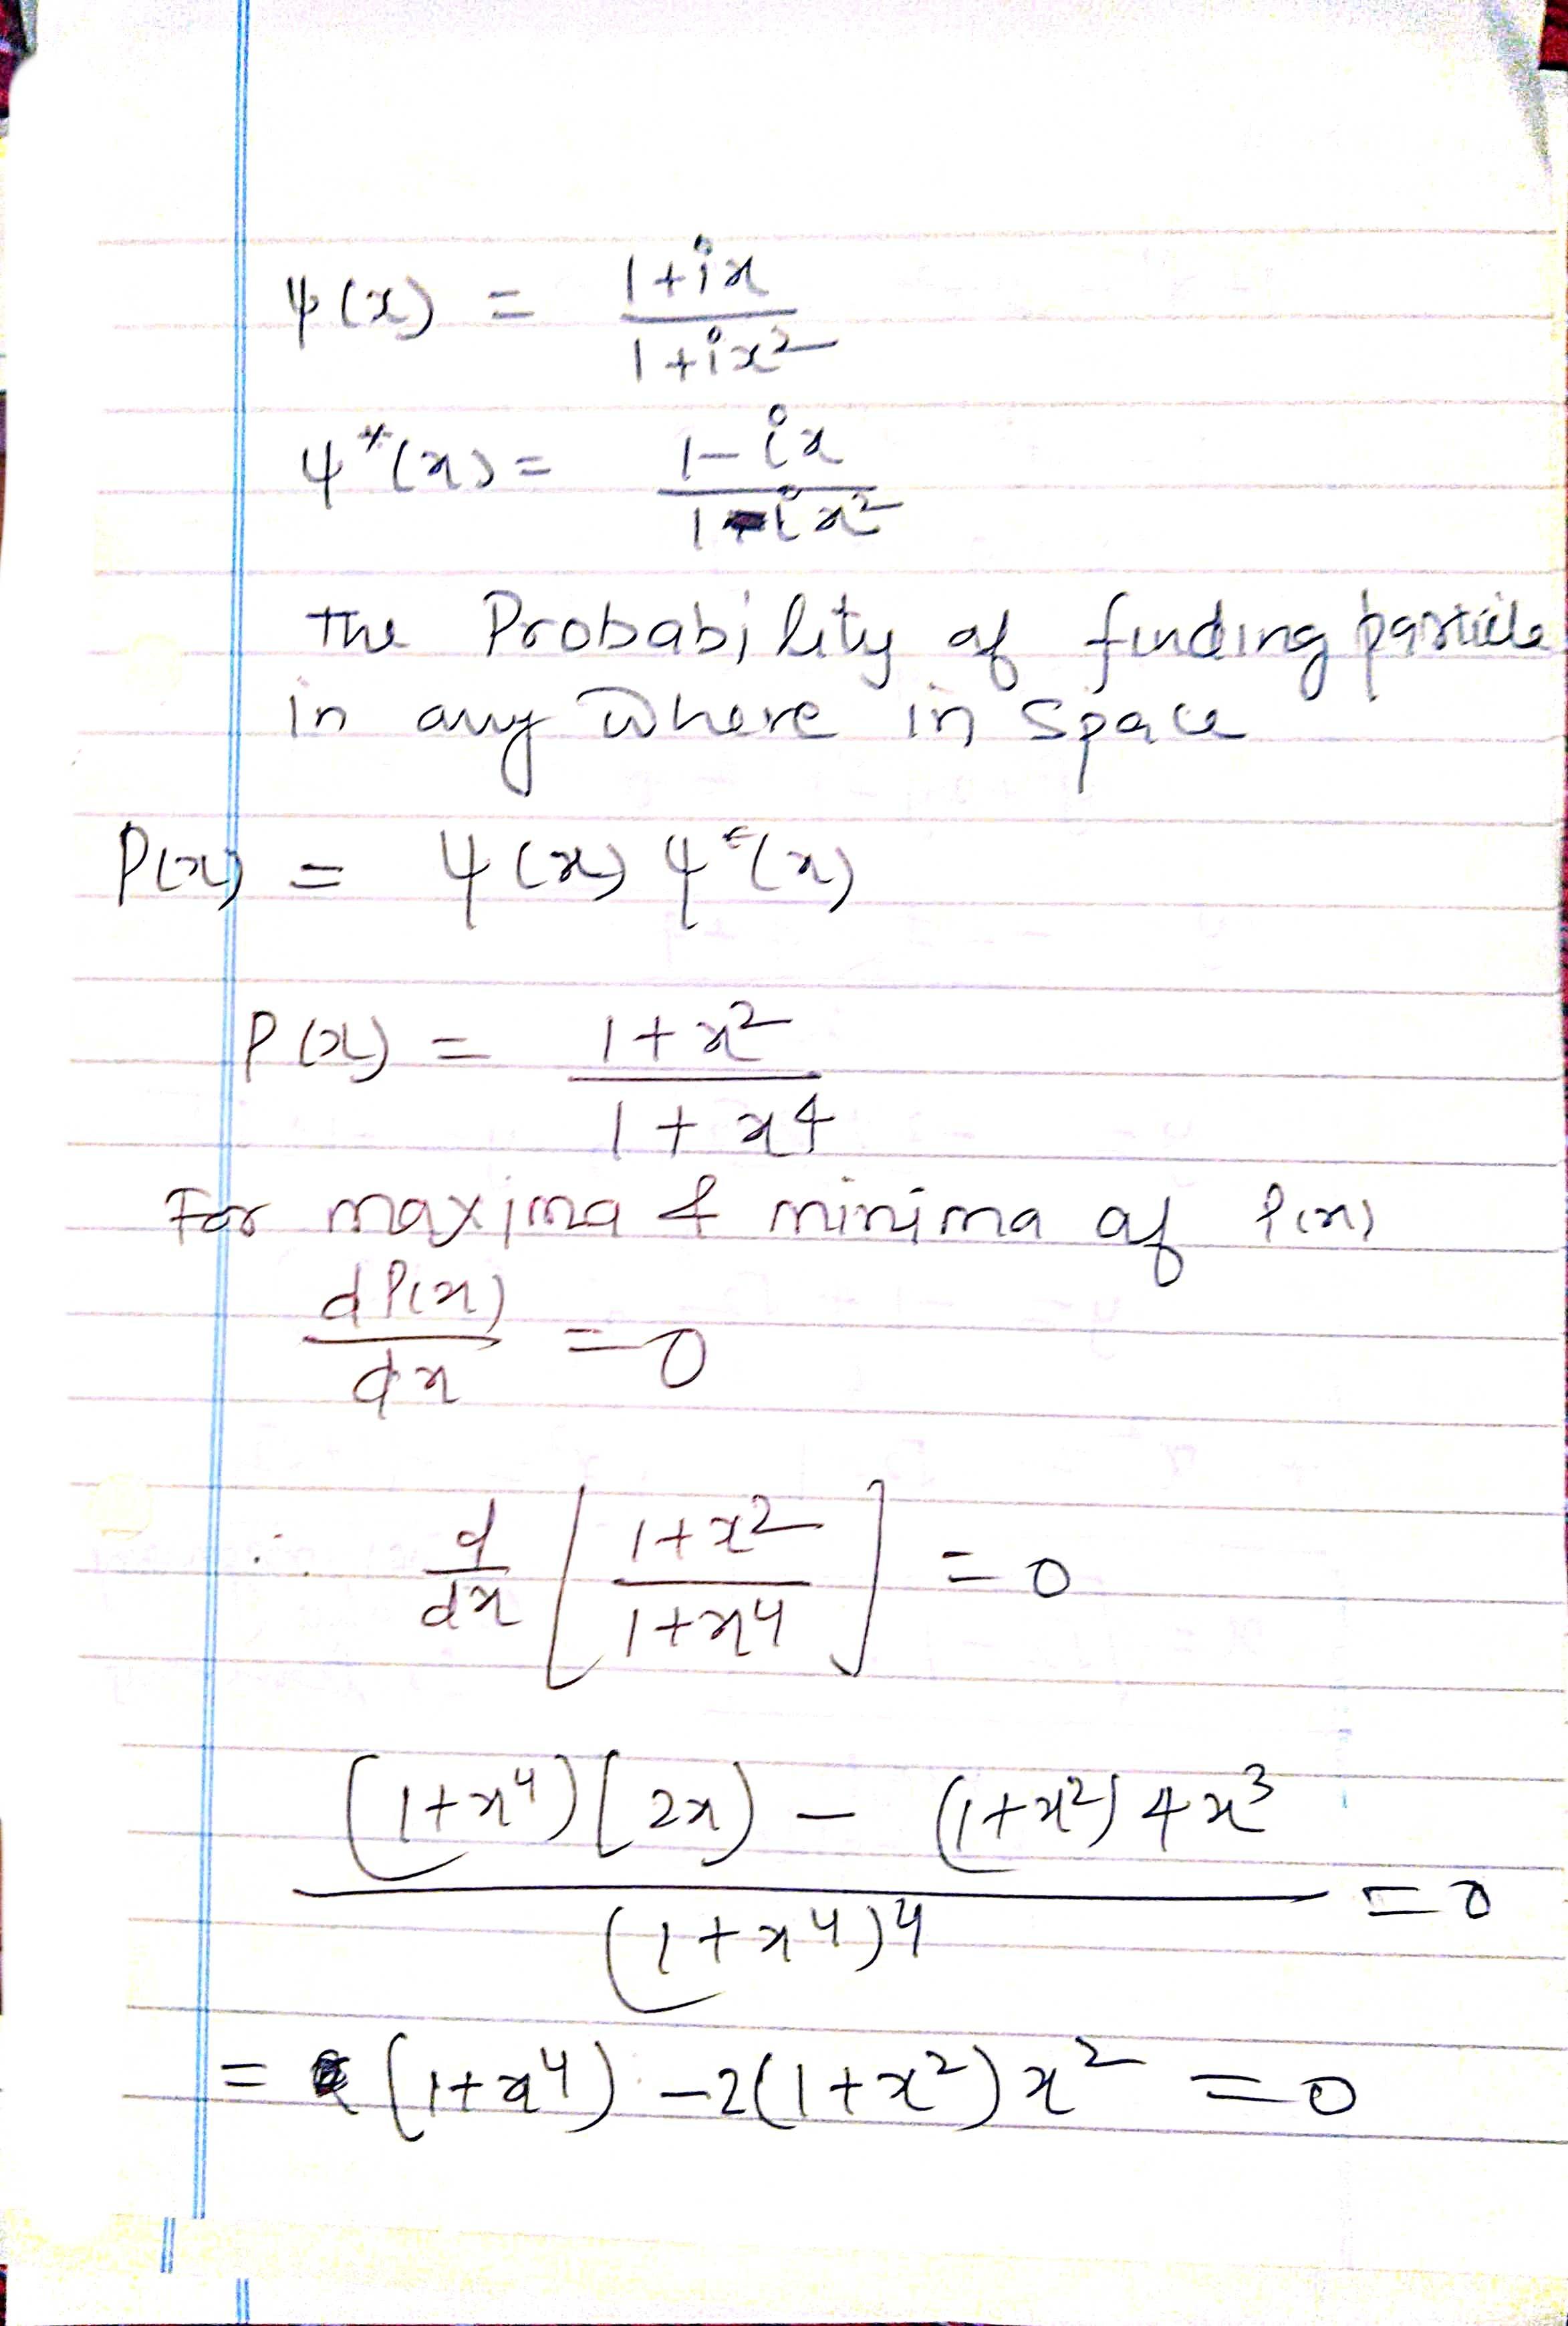 ψ(x) = (1+ix)/(1+ix²)
ψ*(x) = (1-ix)/(1-ix²)
The Probability of finding particle
in any where in space
P(x) = ψ(x) ψ*(x)
P(x) = (1+x²)/(1+x4)
For maxima & minima of P(x)
dP(x)/dx = 0
∴ d/dx [(1+x²)/(1+x⁴)] = 0
((1+x⁴)(2x) - (1+x²)4x³)/(1+x⁴)⁴ = 0
= (1+x⁴) - 2(1+x²)x² = 0